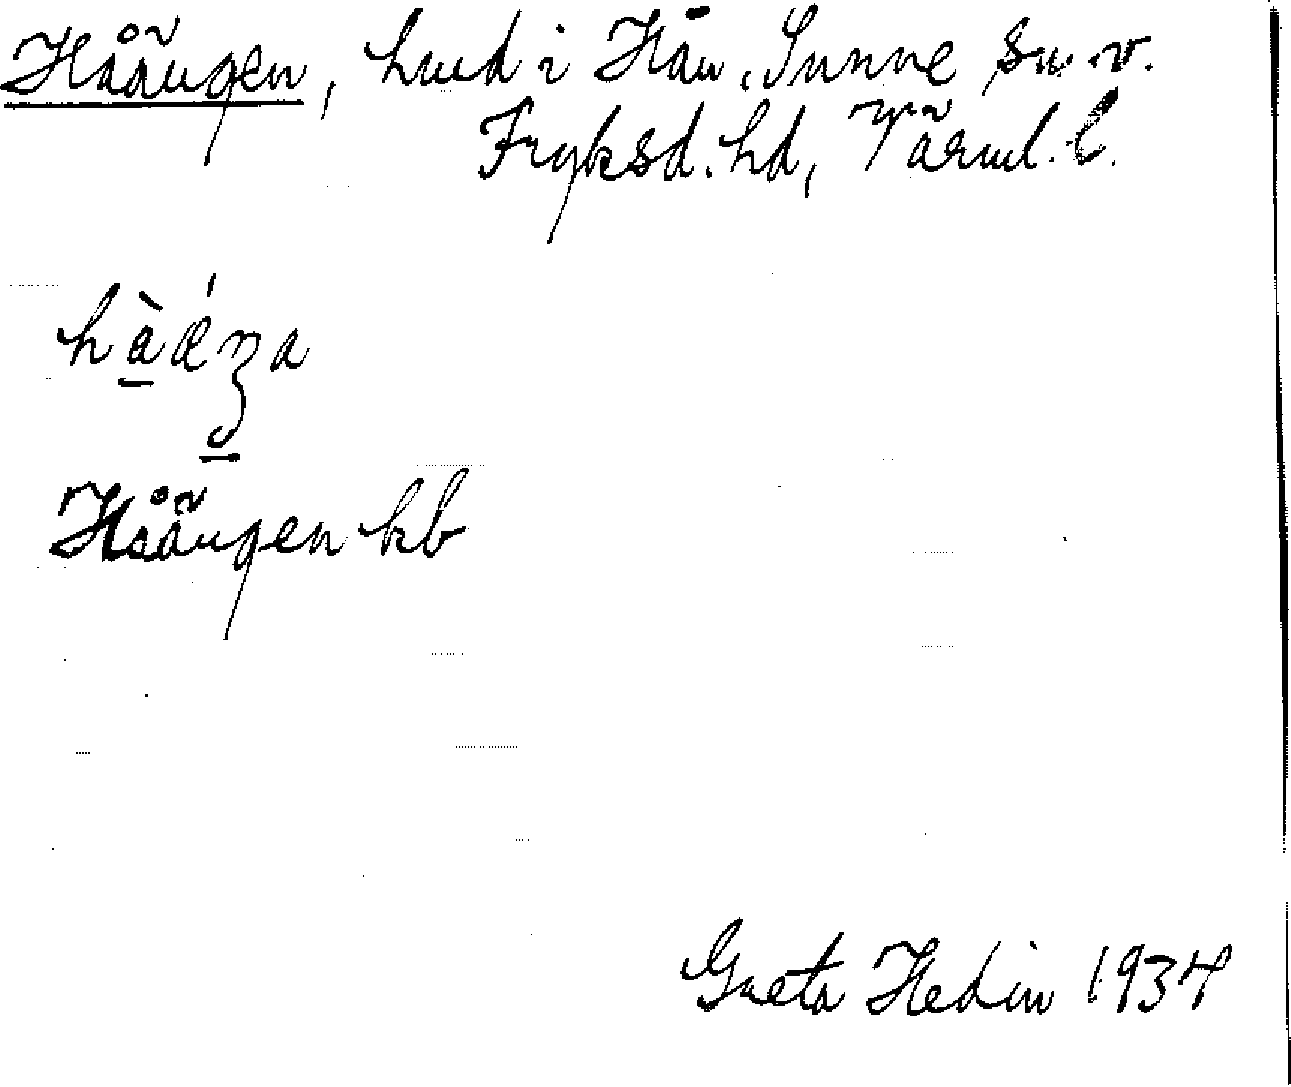 Håängen, hmd i Hån, Sunne sn. v.
Fryksd. hd, Värml. l.
hàǽŋa
Håängen kb
Greta Hedin 1934